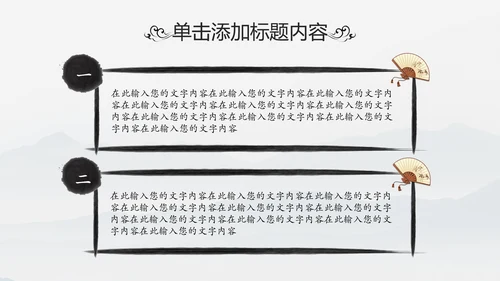 单击添加标题内容
一
在此输入您的文字内容在此输入您的文字内容在此输入您的文字内
容在此输入您的文字内容在此输入您的文字内容在此输入您的文字
内容在此输入您的文字内容在此输入您的文字内容在此输入您的文
字内容在此输入您的文字内容
二
在此输入您的文字内容在此输入您的文字内容在此输入您的文字内
容在此输入您的文字内容在此输入您的文字内容在此输入您的文字
内容在此输入您的文字内容在此输入您的文字内容在此输入您的文
字内容在此输入您的文字内容